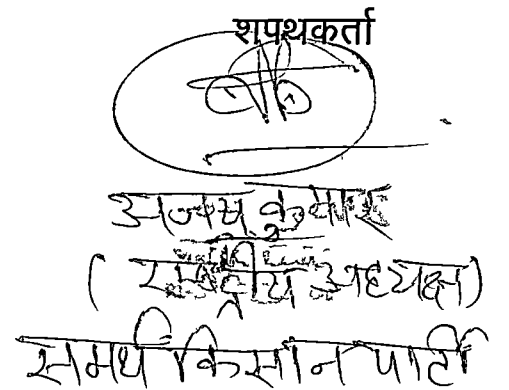 शपथकर्ता
अजय कुमार
( राष्ट्रीय अध्यक्ष)
समर्थ किसान पार्टी